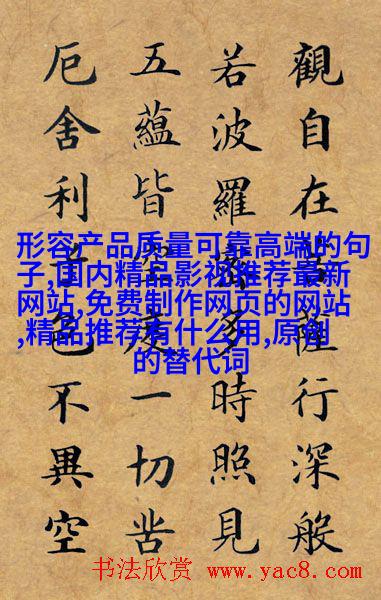 觀自在菩薩行深般
若波羅蜜多時照見
五蘊皆空度一切苦
厄舍利子色不異空
形容产品质量可靠高端的句
子,国内精品影视推荐最新
网站,免费制作网页的网站
,精品推荐有什么用,原创
的替代词
书法欣赏 www.yac8.com